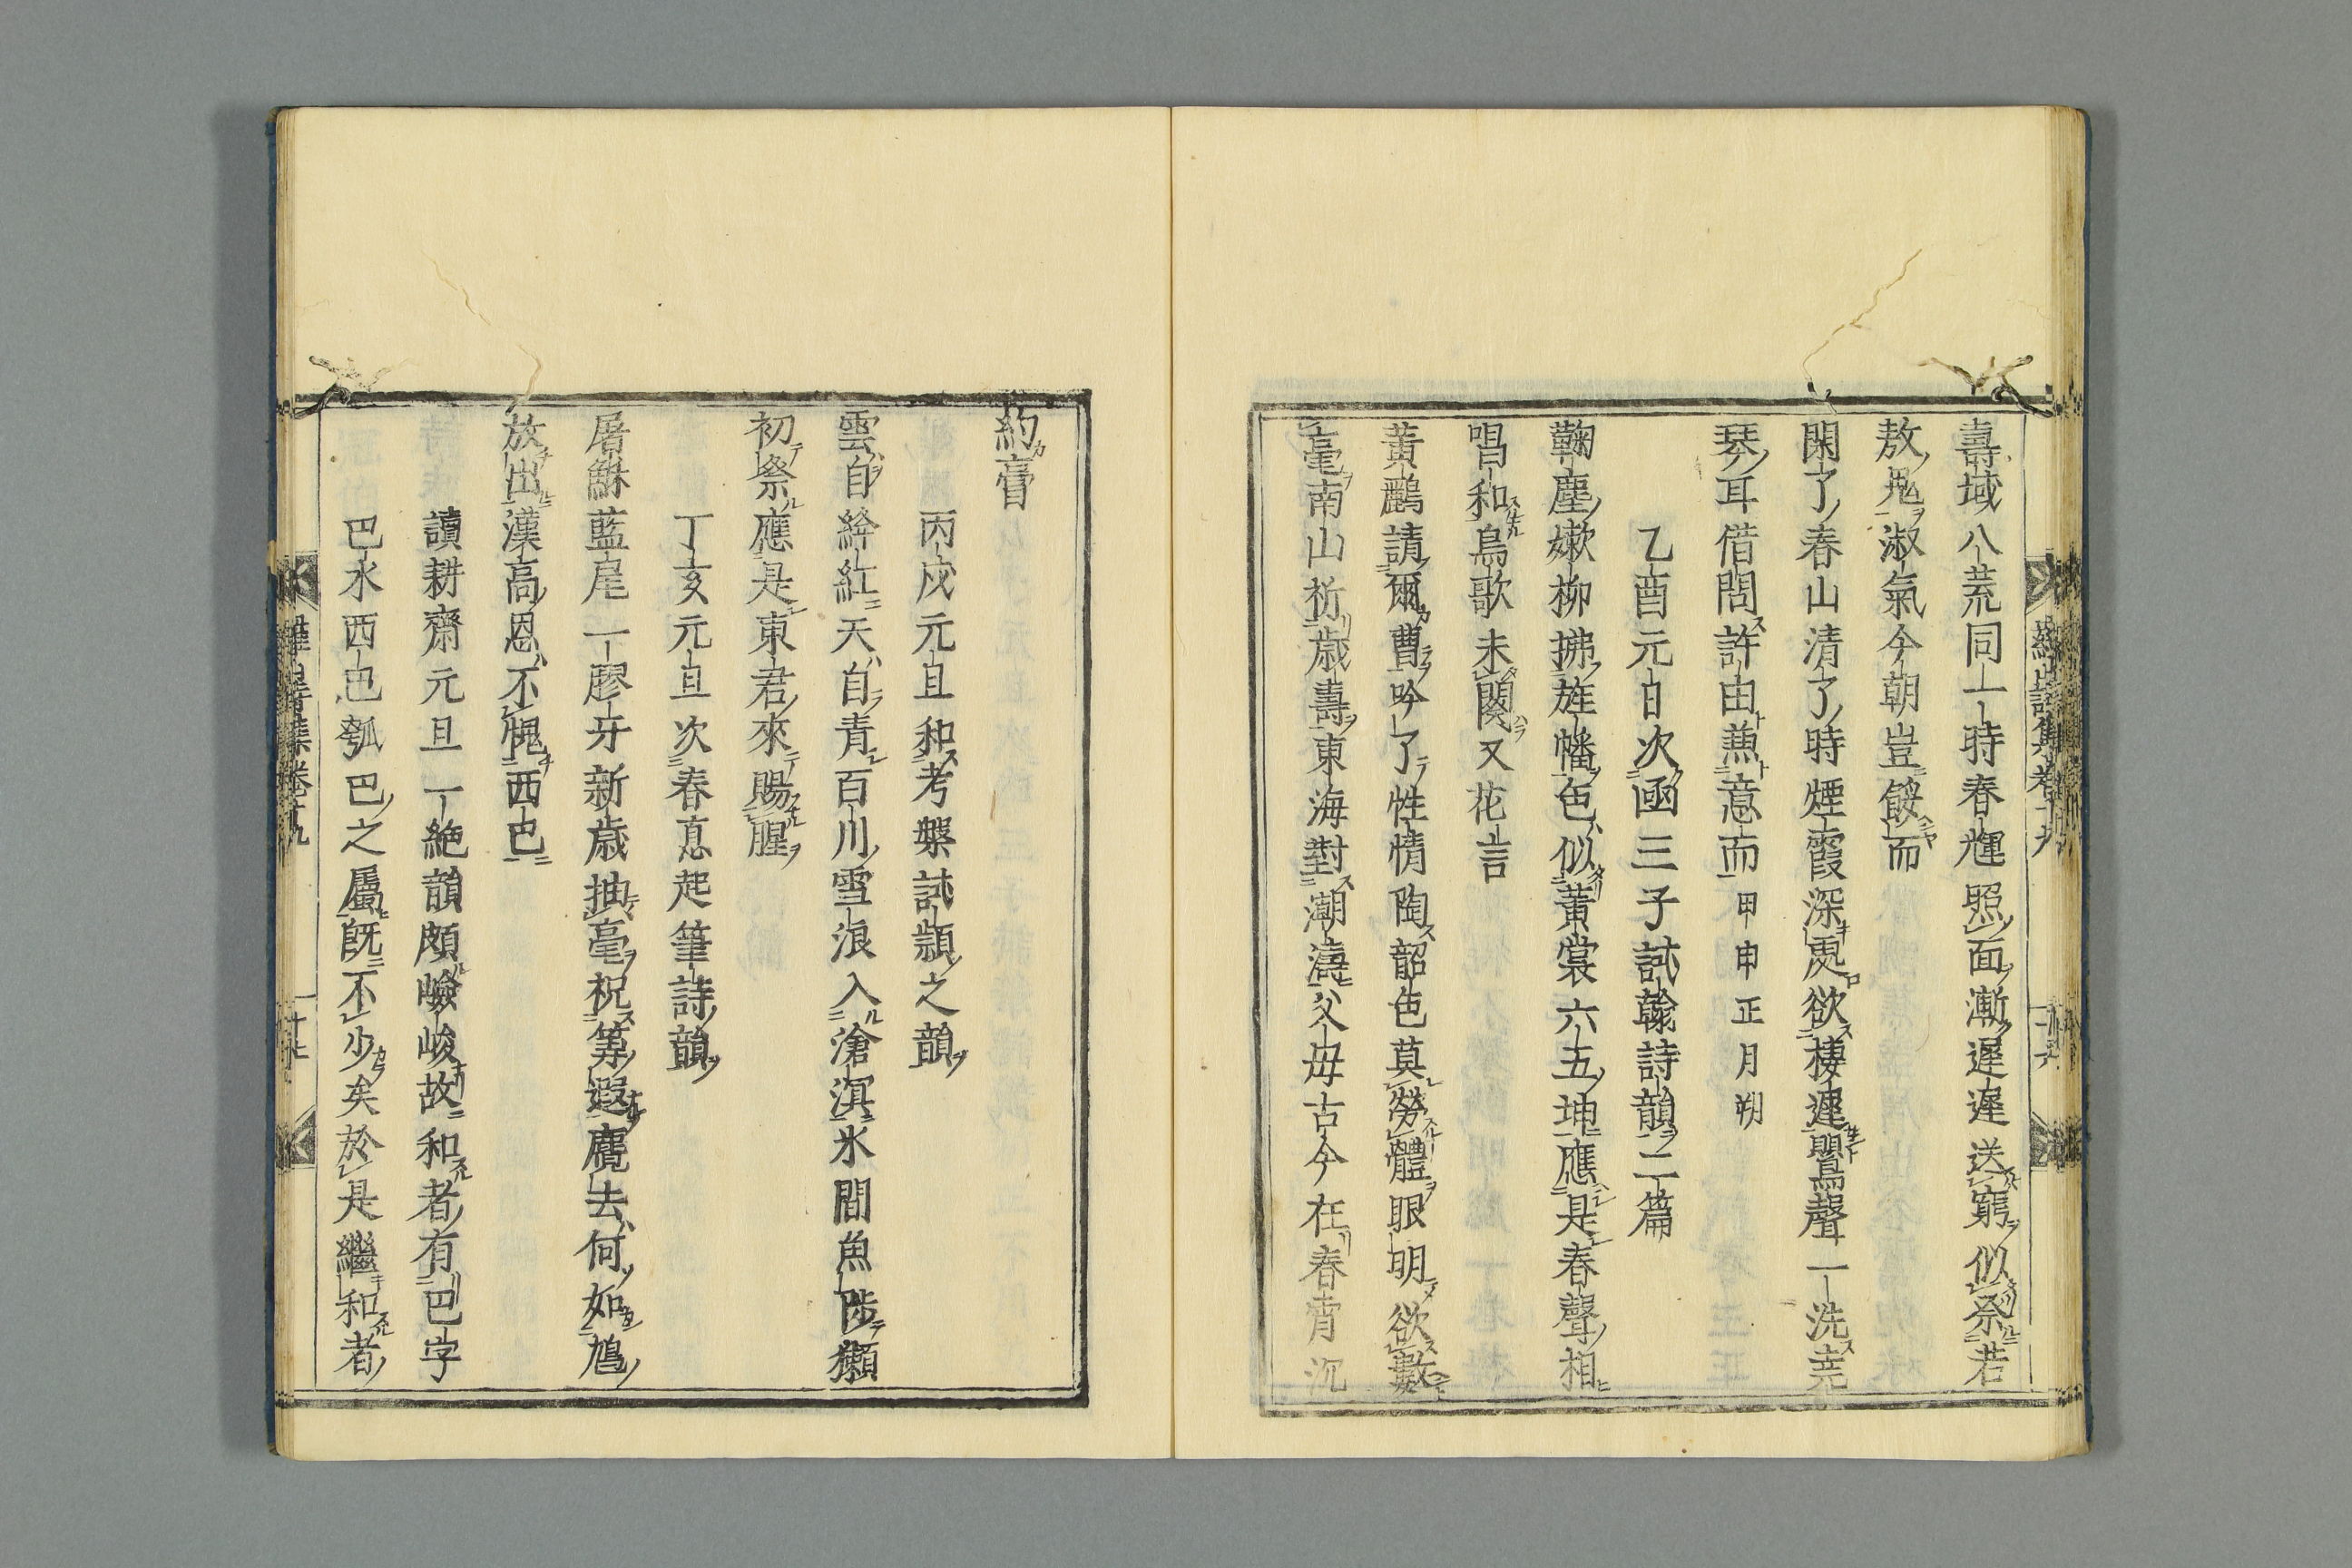 壽域八荒同一時春輝照面漸遲遲送窮似祭若
敖鬼淑氣今朝豈餒而
閑了春山清了時煙霞深更欲棲遲鸎聲一洗堯
琴耳借問許由蕉意而甲申正月朔
乙酉元日次函三子試翰詩韻二篇
鞠塵嫰柳拂旌幡色似黃裳六五坤應是春聲相
唱和鳥歌未闋又花言
黃鸝請爾曹吟了性情陶韶色莫勞體眼明欲數
毫南山祈歲壽東海對潮濤父母古今在春宵沉
羅山詩集卷十九
十六
約膏
丙戌元旦和考槃試穎之韻
雲自絳紅天自青百川雪浪入滄溟氷間魚陟獺
初祭應是東君來賜腥
丁亥元旦次春悳起筆詩韻
屠穌藍尾一膠牙新歲抽毫祝筭遐麑去何如鳩
放出漢高恩不愧西巴
讀耕齋元旦一絶韻頗嶮峻故和者有巴字
巴水西巴瓠巴之屬既不少矣於是繼和者
羅山詩集卷十九
十七